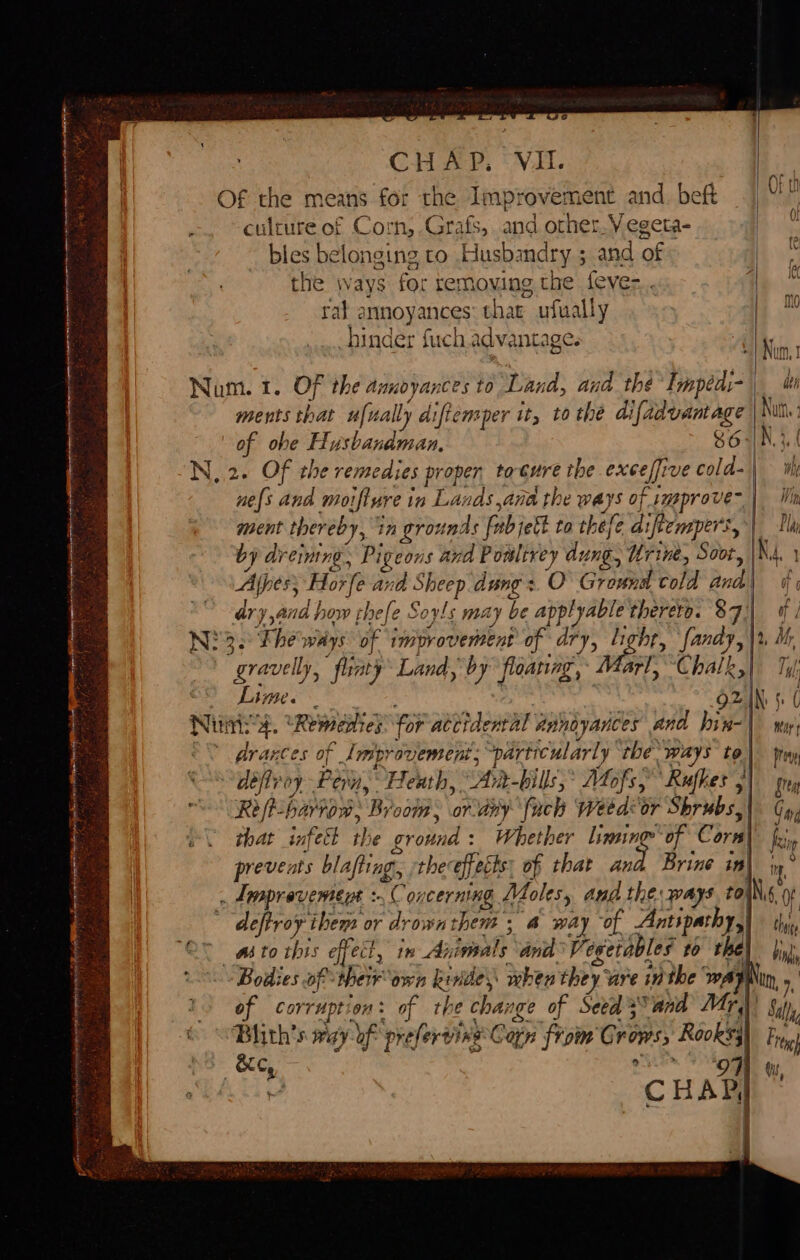 CHAP. VII.
Of the means for the Improvement and beſt
culture of Corn, Graſs, and other Vegeta-
bles belonging to Husbandry ; and of
the ways for removing the ſeve-
ral annoyances that uſually
hinder ſuch advantage.
Num. 1. OF the annoyances to Land, and the Impedi-
ments that uſually diſtemper it, to the diſadvantage
of ohe Husbandman. 86
N. 2. Of the remedies proper to cure the exceſſive cold-
neſs and moiſture in Lands, and the ways of improve-
ment thereby, in grounds ſubject to theſe diſtempers,
by dreining, Pigeons and Poultrey dung, Urine, Soot,
Aſhes, Horſe and Sheep dung : O Ground cold and
dry, and how theſe Soyls may be applyable thereto. 87
N. 3. The ways of improvement of dry, light, ſandy,
gravelly, flinty Land, by floating, Marl, Chalk,
Lime. 92
Num. 4. Remedies for accidental annoyances and hin-
drances of Improvement; particularly the ways to
deſtroy Fern, Heath, Ant-hills, Moſs, Ruſhes ;
Reſt-harrow, Broom, or any ſuch Weeds or Shrubs,
that infect the ground : Whether liming of Corn
prevents blaſting, the effects of that and Brine in
Improvement : Concerning Moles, and the ways to
deſtroy them or drown them ; a way of Antipathy,
as to this effect, in Animals and Vegetables to the
Bodies of their own kinde, when they are in the way
of corruption: of the change of Seed ; and Mr.
Blith's way of preſerving Corn from Crows, Rooks,
&c, 97
CHAP.